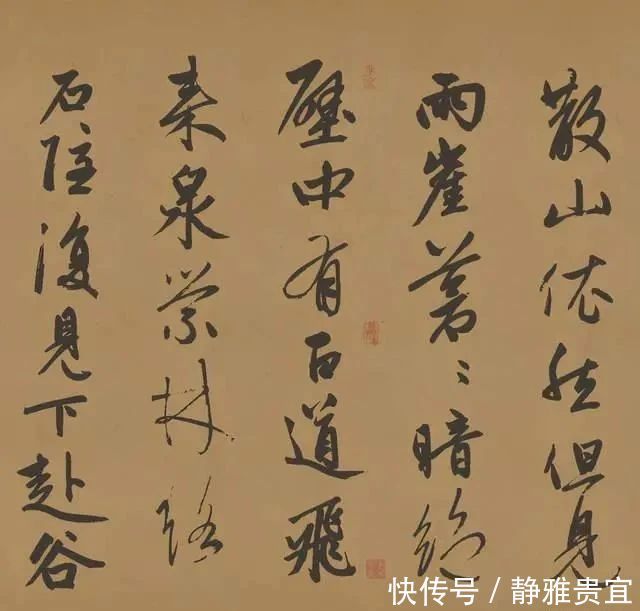 散山依然但見
兩崖蒼〻暗絶
壁中有百道飛
来泉縈林絡
石隱復見下赴谷
快传号 / 静雅贵宜